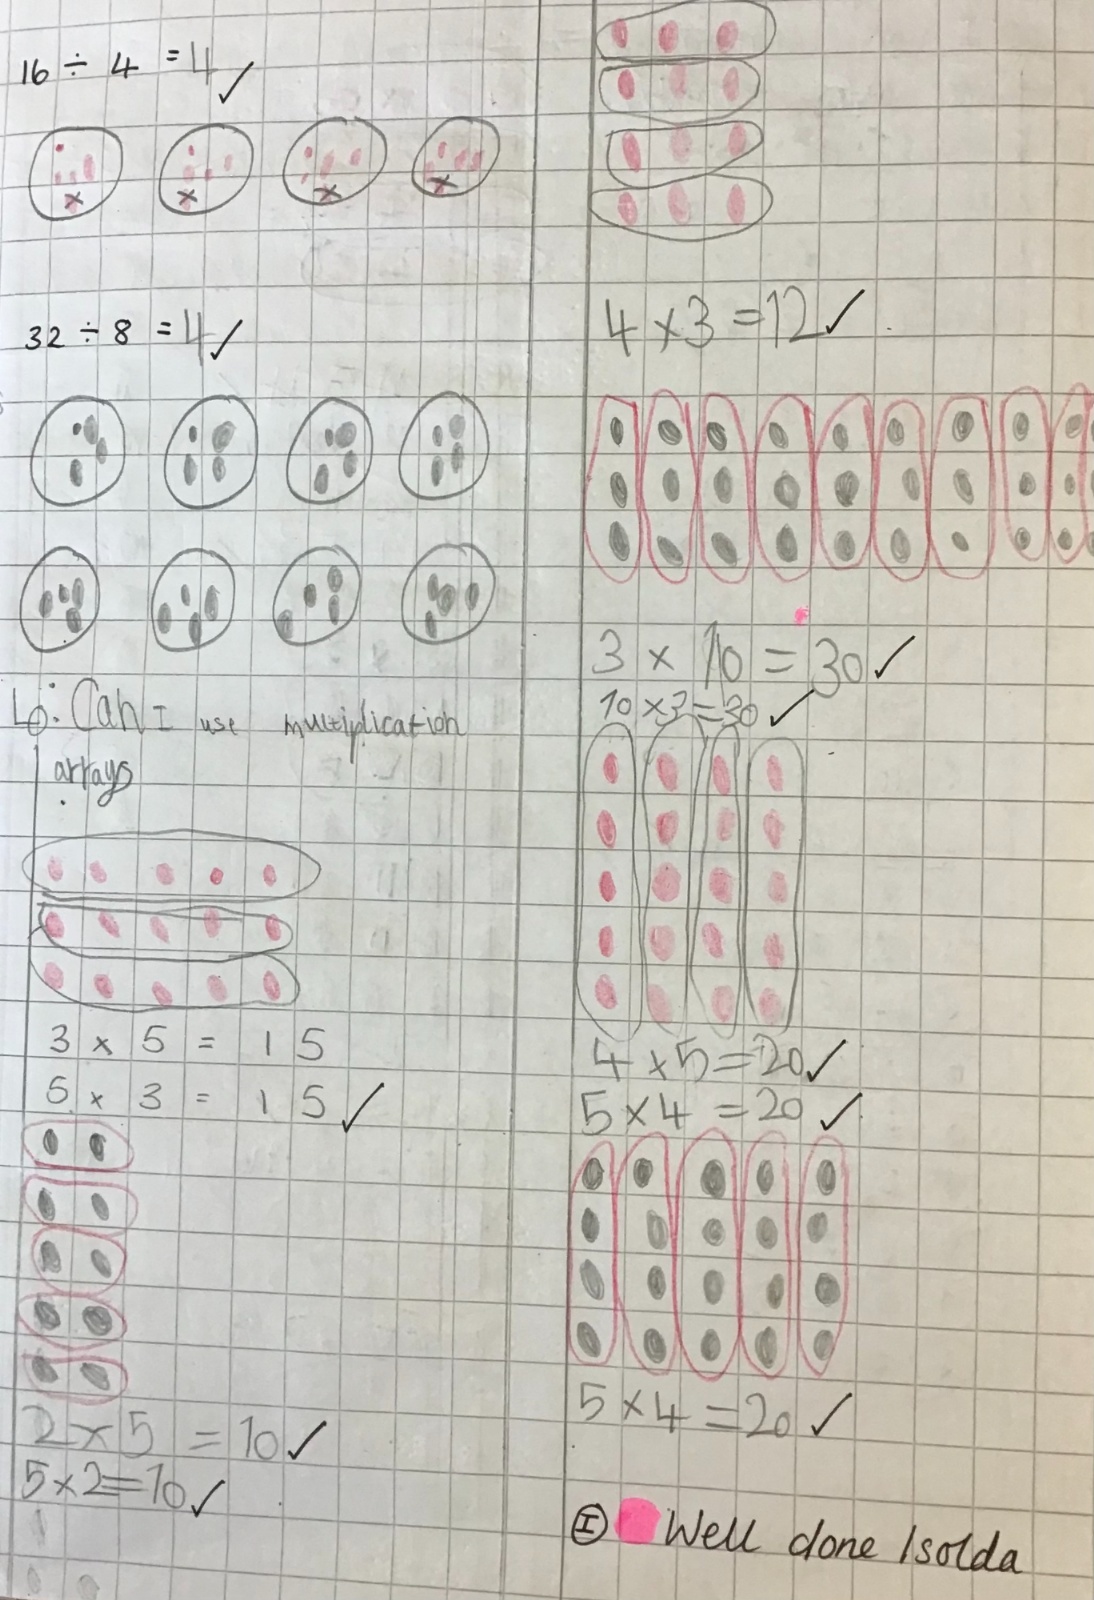 16 ÷ 4 = 4 ✓
x x x x
32 ÷ 8 = 4 ✓
LO: Can I use multiplication
arrays
3 x 5 = 15
5 x 3 = 15 ✓
2 x 5 = 10 ✓
5 x 2 = 10 ✓
4 x 3 = 12 ✓
3 x 10 = 30 ✓
10 x 3 = 30 ✓
4 x 5 = 20 ✓
5 x 4 = 20 ✓
5 x 4 = 20 ✓
I Well done Isolda